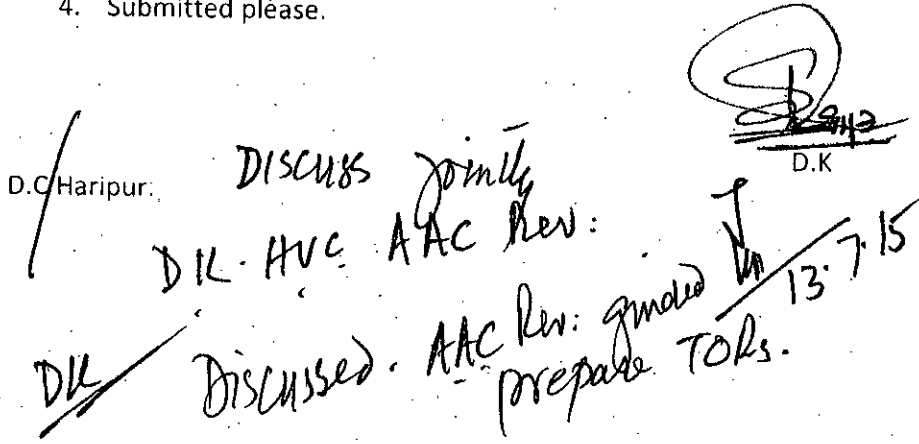 4. Submitted please.
D.K
D.C Haripur:
Discuss jointly
DK. HVC AAC Rev:
13.7.15
DK
Discussed. AAC Rev:
prepare TORs.